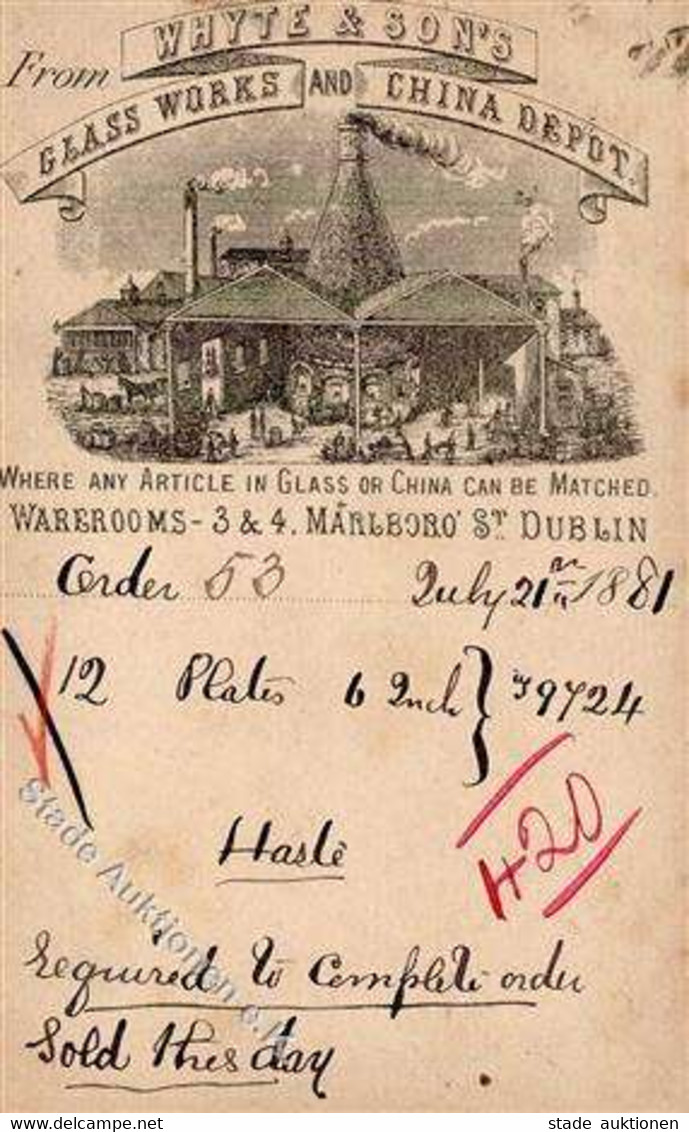 From WHYTE & SON'S
GLASS WORKS AND CHINA DEPÔT.
WHERE ANY ARTICLE IN GLASS OR CHINA CAN BE MATCHED.
WAREROOMS - 3 & 4. MARLBORO' ST. DUBLIN
Order 53 July 21 1881
12 Plates 6 Inch } 9724
420
Haste
required to complete order
Sold this day
Stade Auktionen
delcampe.net
stade auktionen